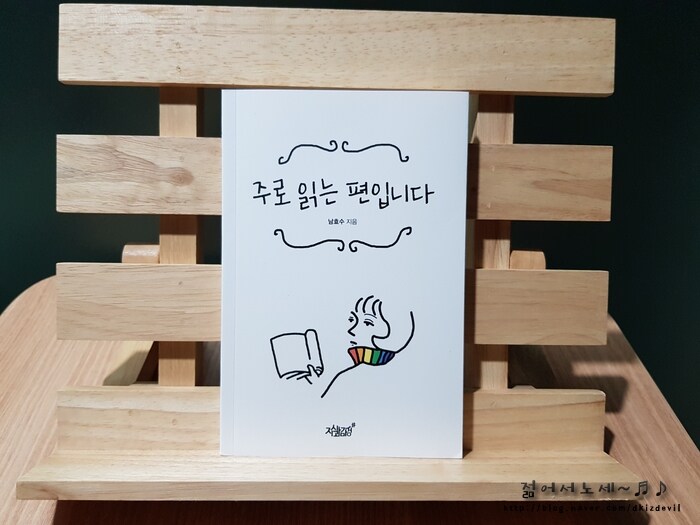 주로 읽는 편입니다
남효수 지음
지식과감성#
젊어서노세~♬♪
http://blog.naver.com/akizdevil